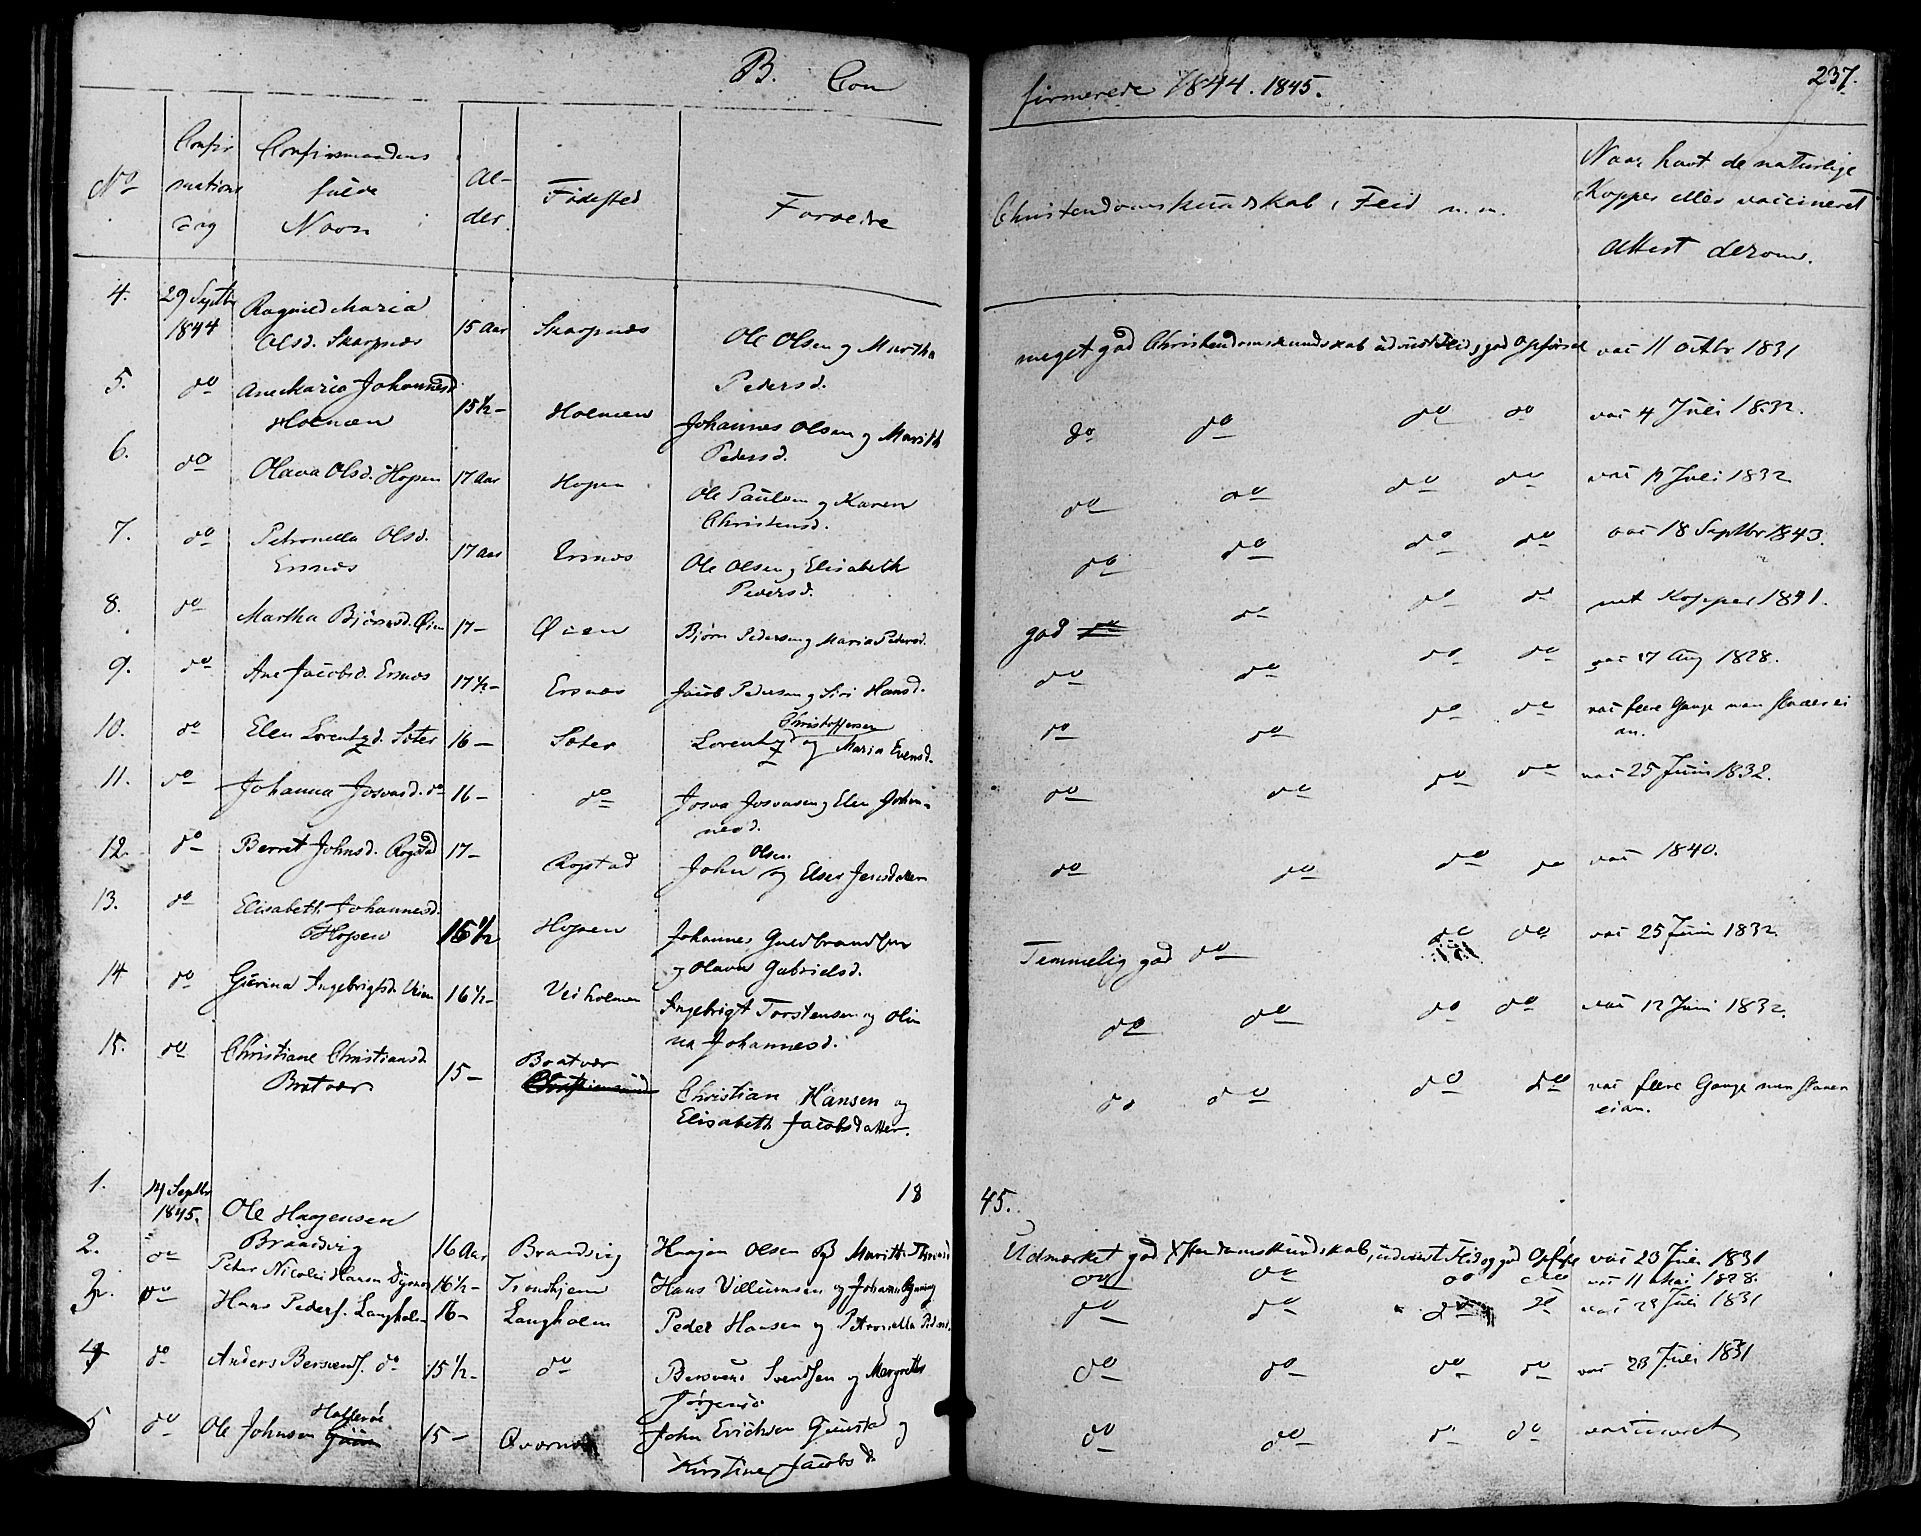 B. Con
firmerede 1844. 1845.
237.
No
Confir
mations
Dag
Confirmandens
fulde
Navn
Al-
der.
Fødested
Forældre
Christendomskundskab, Flid m. m.
Naar havt de naturlige
Kopper eller vaccineret
Attest derom.
4. 29 Septbr 1844 Ragnild Maria
Olsd. Skarpnæs 15 Aar Skarpnæs Ole Olsen og Martha
Pedersd. meget god Christendomskundskab udvist Flid, god Opførsel vac 11 octbr 1831
5. do Ane Maria Johannesd.
Holmen 15½- Holmen Johannes Olsen og Marith
Pedersd. do do do do vac 4 Juli 1832.
6. do Olava Olsd. Hopen 17 Aar Hopen Ole Paulsen og Karen
Christensd. do do do do vac Juli 1832
7. do Petronella Olsd.
Ersnæs 17 Aar Ersnæs Ole Olsen og Elisabeth
Pedersd. do do do do vac 18 Septbr 1843.
8. do Martha Bjørnsd. Øien 17- Øien Bjørn Pedersen og Maria Pedersd. god do do do do Kopper 1841.
9. do Ane Jacobsd. Ersnæs 17½- Ersnæs Jacob Pedersen og Siri Hansd. do do do do vac 17 Aug 1828.
10. do Elen Lorentzd. Soter 16- Soter Lorentz Christoffersen og Maria Evensd. do do do do vac flere Gange men slaaer ei
an.
11. do Johanna Josvasd. do 16- do Josva Josvasen og Elen Johan-
nesd. do do do do vac 25 Juni 1832.
12. do Berret Johnsd. Rogstad 17- Rogstad John Olsen og Elses Jensdatter do do do do vac 1840.
13. do Elisabeth Johannesd.
Hopen 16½ Hopen Johannes Guldbrandsen
og Olava Gabrielsd. Temmelig god do do do vac 25 Juni 1832.
14 do Gurina Ingebrigtsd. 16½- Veiholmen Ingebrigt Torstensen og Oli
na Johannesd. do do do do vac 12 Juni 1832.
15. do Christiane Christiansd.
Bratvær 15- Bratvær
Christiansund Christian Hansen og
Elisabeth Jacobsdatter. do do do do vac flere Gange men slaaer
ei an.
1845.
1. 14 Septbr 1845. Ole Haagensen
Brandsvig 16 Aar Brandsvig Haagen Olsen og Marith Udmærket god Xstendomskundskab, udviist Flid og god Opførs vac 23 Juli 1831
2. do Peter Nicolai Hansen 16½- Trondhjem Hans Villumsen og do do do do vac 11 Mai 1828.
3. do Hans Peders. Langholm 16- Langholm Peder Hansen og Petronella Pedersd. do do do do vac 23 Juli 1831
4 do Anders Bersvends. do 15½- do Bersvend Svendsen og Margrethe
Jørgensd. do do do do vac 23 Juli 1831
5 do Ole Johnsen 15- Qværnæs John Erichsen Gunstad og
Kirstine Jacobsd. do do do do vaccineret